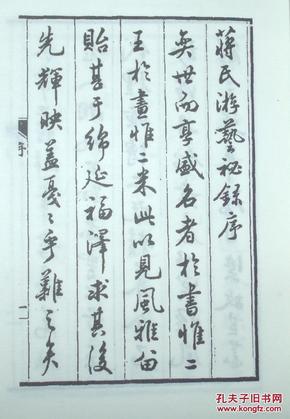 蔣氏游藝祕錄序
奕世而享盛名者於書惟二
王於畫惟二米此以見風雅留
貽甚于綿延福澤求其後
先輝映蓋戞戞乎難之矣
序
一